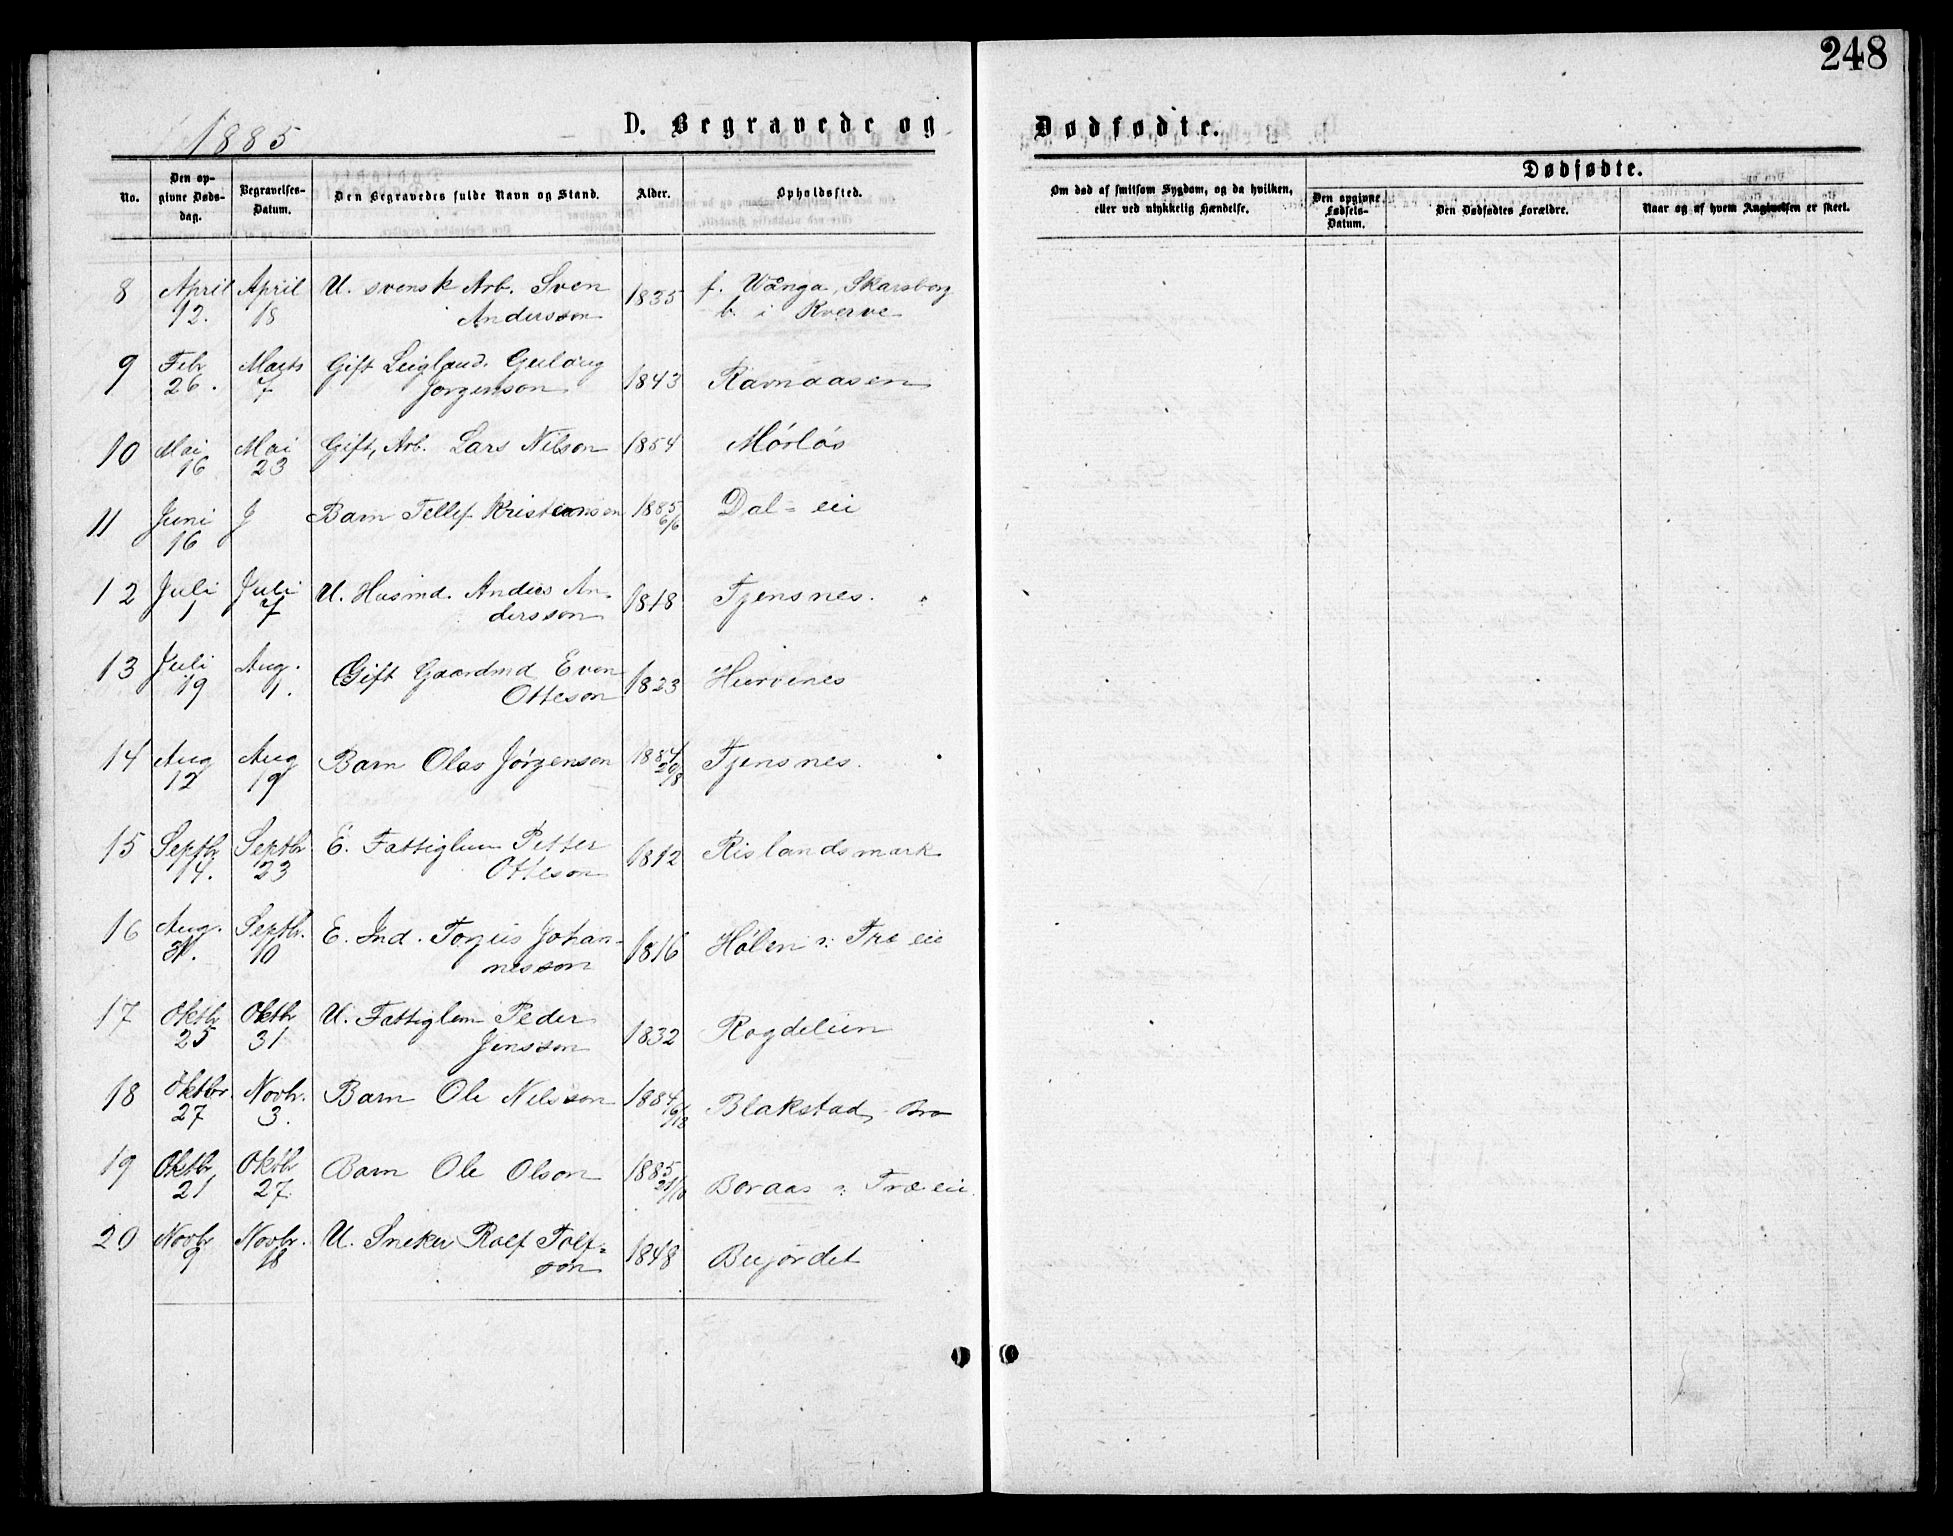 248
1885
D. Begravede og
Dødfødte.
No.
Den op-
givne Døds-
dag.
Begravelses-
Datum.
Den Begravedes fulde Navn og Stand.
Alder.
Opholdssted.
Om død af smitsom Sygdom, og da hvilken,
eller ved ulykkelig Hændelse.
Dødfødte.
Den opgivne
Fødsels-
Datum.
Den Dødfødtes Forældre.
Naar og af hvem Angivelsen er skeet.
8 April April U. svensk Arb. Sven 1835 f. Wånga, Skarsborg
12. 18 Andersson b. i Kverve
9 Febr Marts Gift Leigland. Guldug 1843 Ravnaasen
26. 7 Jorgenson
10 Mai Mai Gift, Arb. Lars Nilson 1854 Mórlós
16 23
11 Juni J Barn Tellef Kristensen 1885 Dal-eie
16 6/6
12 Juli Juli U. Husmd. Anders An- 1818 Tjensnes.
1 7 dersson
13 Juli Aug. Gift Gaardmd Even 1823 Hurvenes
19 1. Otteson
14 Aug Aug Barn Olas Jørgenson 1884 Tjensnes.
12 19 20/8
15 Septbr Septbr E. Fattiglem Petter 1812 Rislandsmark
14. 23 Otteson
16 Aug. Septbr. E. Ind. Torjus Johan- 1816 Hólen u: Træ eie
31. 10 nesson
17 Oktbr Oktbr U. Fattiglem Peder 1832 Rogdelien
25 31 Jensson
18 Oktbr. Novbr. Barn Ole Nelsson 1884 Blakstad, Bro
27 3. 6/12
19 Oktbr Oktbr Barn Ole Olson 1885 Boraas u: Træ eie
21 27. 21/10
20 Novbr Novbr. U. Sneker Rolf Tolf- 1848 Bujordet
9 18 son